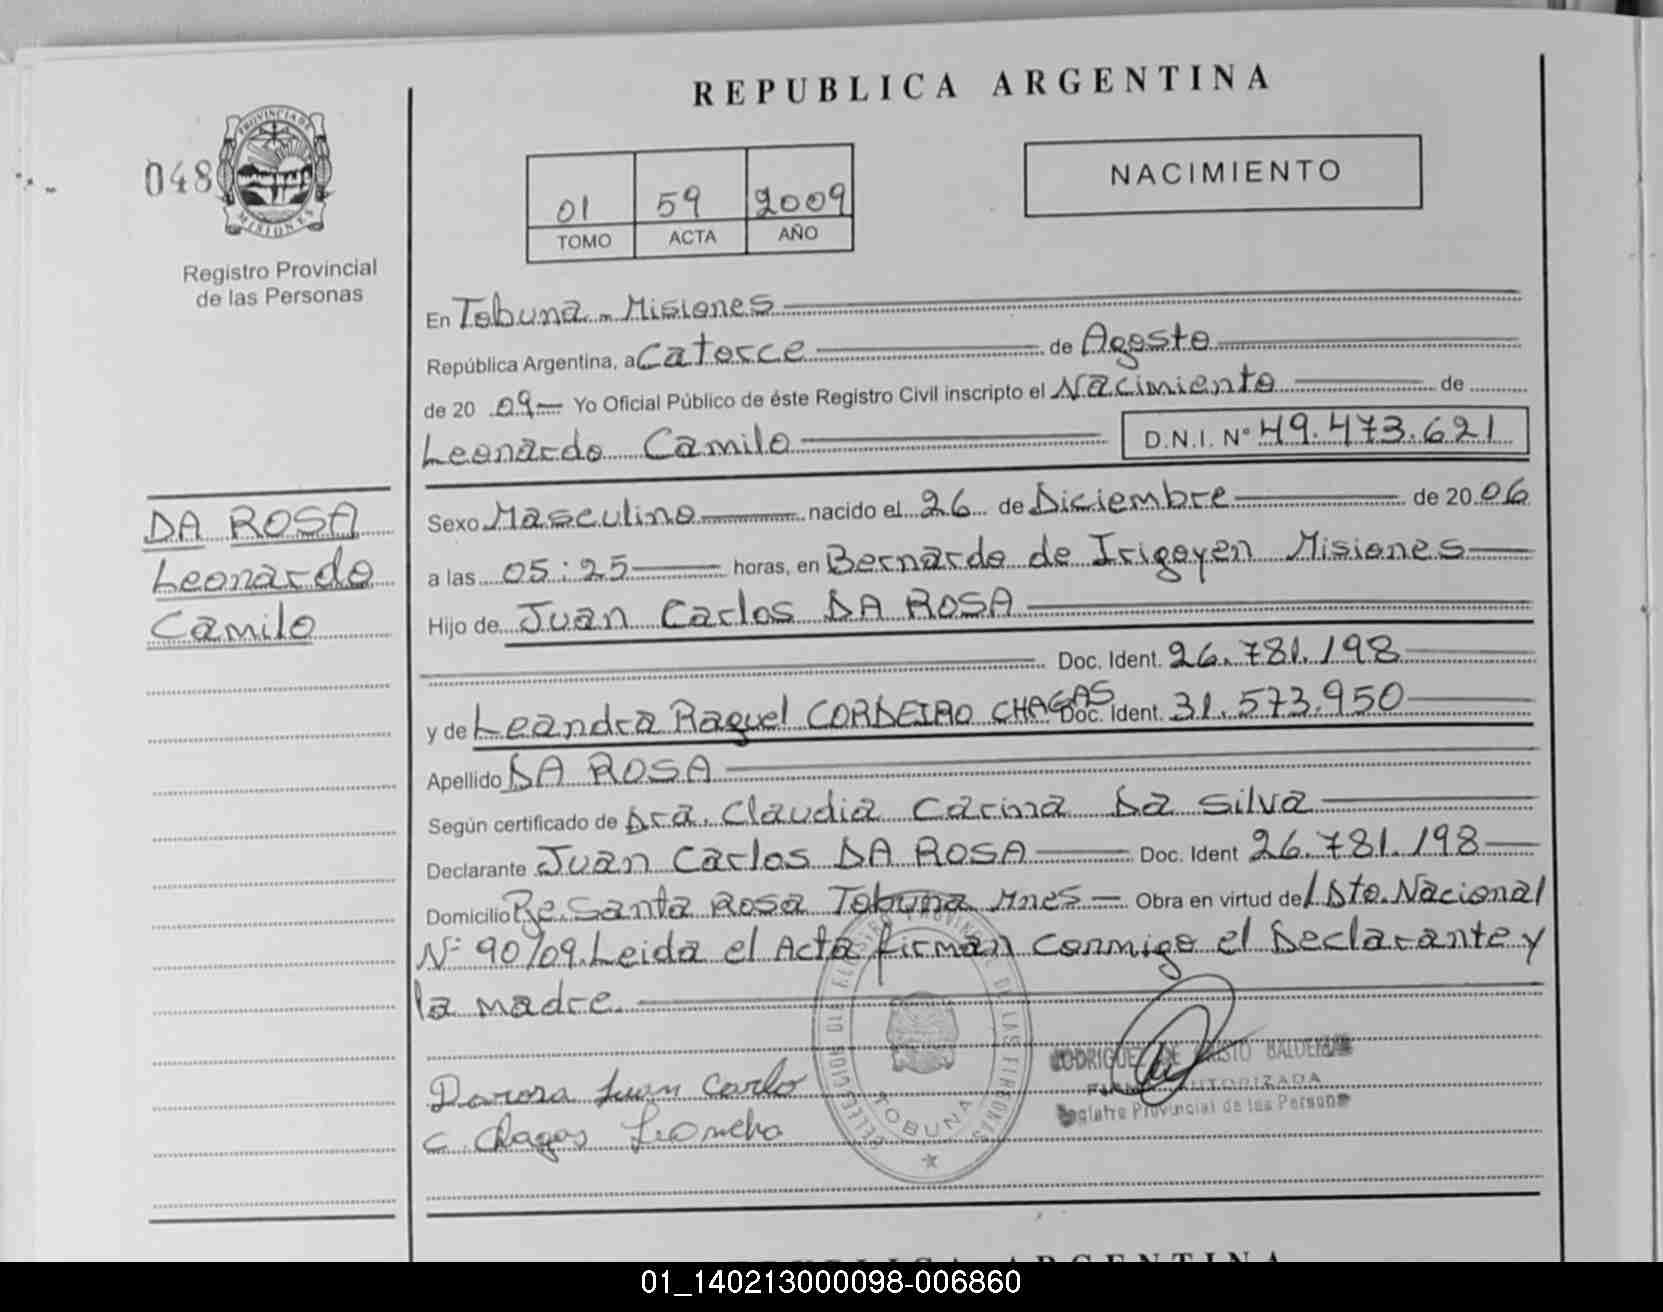 REPUBLICA ARGENTINA
048
PROVINCIA DE
MISIONES
Registro Provincial
de las Personas
01 59 2009
TOMO ACTA AÑO
NACIMIENTO
En Tobuna - Misiones
República Argentina, a Catorce de Agosto
de 20 09 Yo Oficial Público de éste Registro Civil inscripto el Nacimiento de
Leonardo Camilo D.N.I. Nº 49.473.621
DA ROSA
Leonardo
Camilo
Sexo Masculino nacido el 26 de Diciembre de 20 06
a las 05:25 horas, en Bernardo de Irigoyen Misiones
Hijo de Juan Carlos DA ROSA
Doc. Ident. 26.781.198
y de Leandra Raquel CORDEIRO CHAGAS Doc. Ident. 31.573.950
Apellido DA ROSA
Según certificado de Dra. Claudia Carina Da Silva
Declarante Juan Carlos DA ROSA Doc. Ident 26.781.198
Domicilio Santa Rosa Tobuna Mnes Obra en virtud de Dto. Nacional
Nº 90/09. Leida el Acta firman conmigo el Declarante y
la madre.
Darosa Juan Carlo
C. Chagas
TOBUNA
RODRIGUEZ DE
AUTORIZADA
Registro Provincial de las Personas
REPUBLICA ARGENTINA
01_140213000098-006860